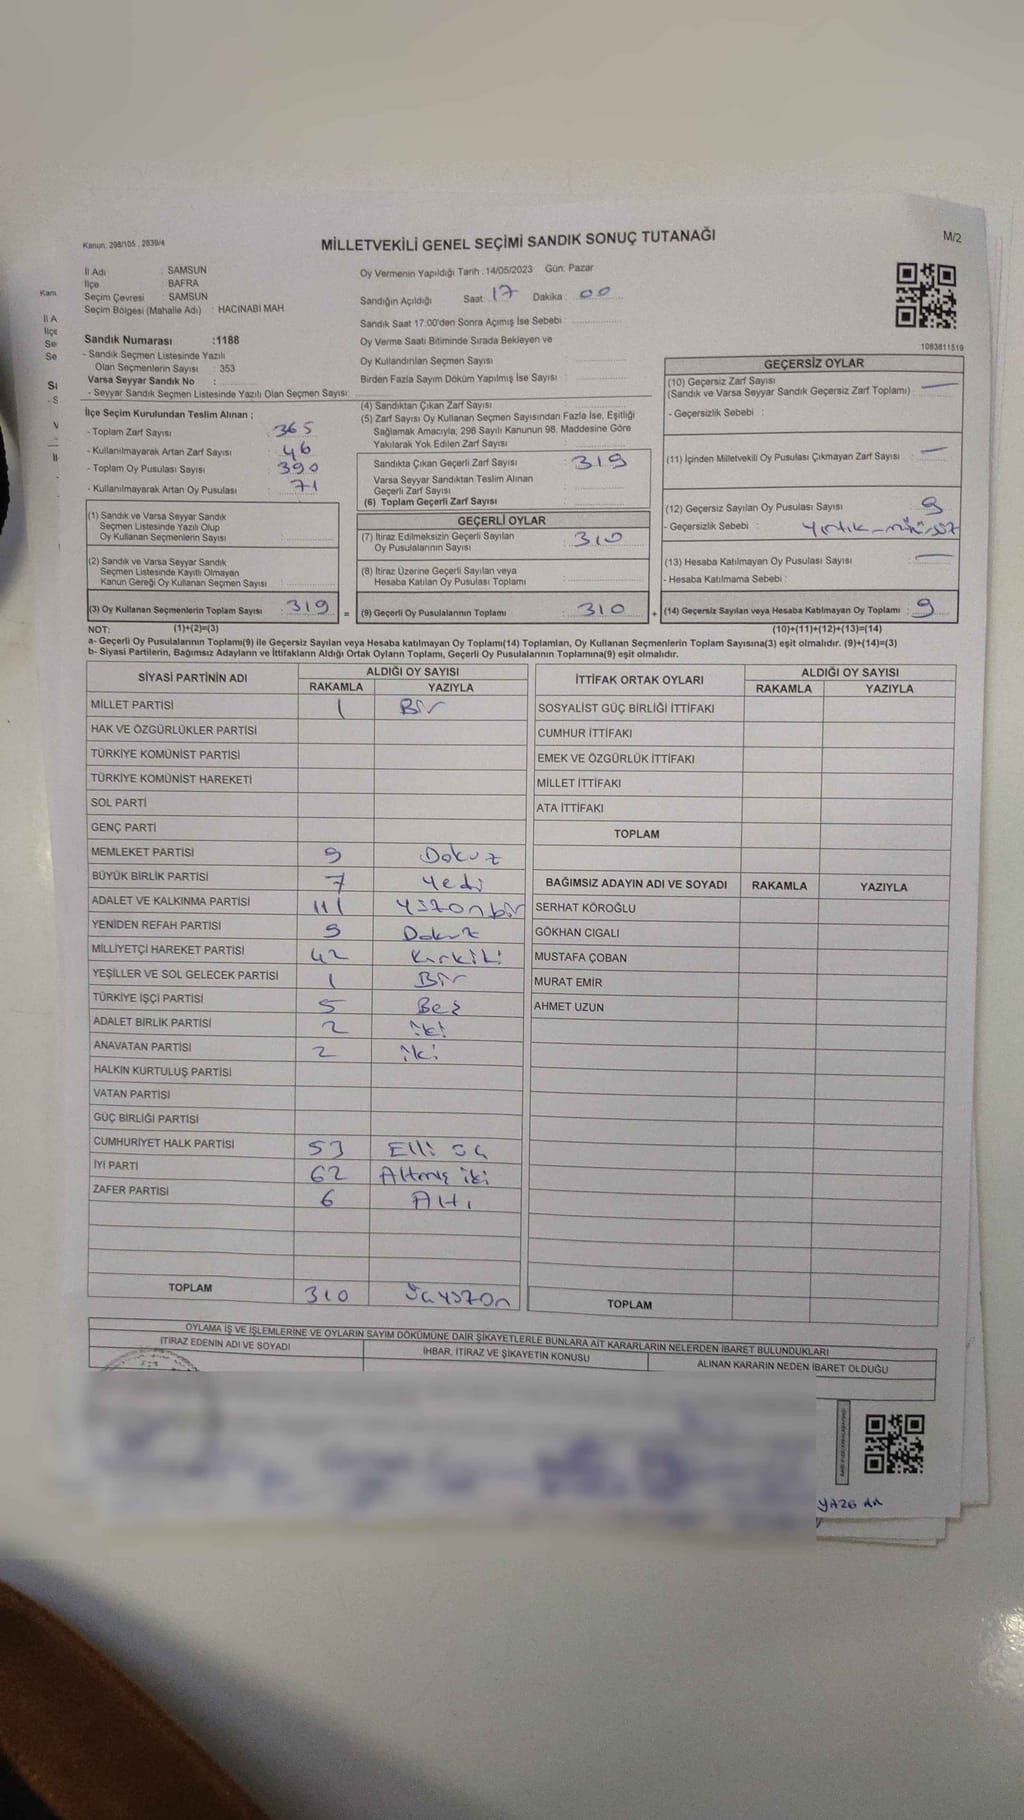 Kanun: 298/105 , 2839/4
MİLLETVEKİLİ GENEL SEÇİMİ SANDIK SONUÇ TUTANAĞI
M/2
İl Adı : SAMSUN
İlçe : BAFRA
Seçim Çevresi : SAMSUN
Seçim Bölgesi (Mahalle Adı) : HACINABİ MAH.
Sandık Numarası :1188
- Sandık Seçmen Listesinde Yazılı
Olan Seçmenlerin Sayısı : 353
Varsa Seyyar Sandık No :
- Seyyar Sandık Seçmen Listesinde Yazılı Olan Seçmen Sayısı:
Oy Vermenin Yapıldığı Tarih :14/05/2023 Gün: Pazar
Sandığın Açıldığı Saat : 17 Dakika : 00
Sandık Saat 17:00'den Sonra Açımış İse Sebebi:
Oy Verme Saati Bitiminde Sırada Bekleyen ve
Oy Kullandırılan Seçmen Sayısı :
Birden Fazla Sayım Döküm Yapılmış İse Sayısı :
1083811519
İlçe Seçim Kurulundan Teslim Alınan ;
- Toplam Zarf Sayısı : 365
- Kullanılmayarak Artan Zarf Sayısı : 46
- Toplam Oy Pusulası Sayısı : 390
- Kullanılmayarak Artan Oy Pusulası : 71
(1) Sandık ve Varsa Seyyar Sandık
Seçmen Listesinde Yazılı Olup
Oy Kullanan Seçmenlerin Sayısı :
(2) Sandık ve Varsa Seyyar Sandık
Seçmen Listesinde Kayıtlı Olmayan
Kanun Gereği Oy Kullanan Seçmen Sayısı :
(3) Oy Kullanan Seçmenlerin Toplam Sayısı : 319 =
(4) Sandıktan Çıkan Zarf Sayısı :
(5) Zarf Sayısı Oy Kullanan Seçmen Sayısından Fazla İse, Eşitliği
Sağlamak Amacıyla; 298 Sayılı Kanunun 98. Maddesine Göre
Yakılarak Yok Edilen Zarf Sayısı :
Sandıkta Çıkan Geçerli Zarf Sayısı : 319
Varsa Seyyar Sandıktan Teslim Alınan
Geçerli Zarf Sayısı :
(6) Toplam Geçerli Zarf Sayısı :
GEÇERLİ OYLAR
(7) İtiraz Edilmeksizin Geçerli Sayılan
Oy Pusulalarının Sayısı : 310
(8) İtiraz Üzerine Geçerli Sayılan veya
Hesaba Katılan Oy Pusulası Toplamı :
(9) Geçerli Oy Pusulalarının Toplamı : 310 +
GEÇERSİZ OYLAR
(10) Geçersiz Zarf Sayısı
(Sandık ve Varsa Seyyar Sandık Geçersiz Zarf Toplamı) : —
- Geçersizlik Sebebi :
(11) İçinden Milletvekili Oy Pusulası Çıkmayan Zarf Sayısı : —
(12) Geçersiz Sayılan Oy Pusulası Sayısı : 9
- Geçersizlik Sebebi : Yırtık-mühürsüz
(13) Hesaba Katılmayan Oy Pusulası Sayısı : —
- Hesaba Katılmama Sebebi :
(14) Geçersiz Sayılan veya Hesaba Katılmayan Oy Toplamı : 9
NOT: (1)+(2)=(3) (10)+(11)+(12)+(13)=(14)
a- Geçerli Oy Pusulalarının Toplamı(9) ile Geçersiz Sayılan veya Hesaba katılmayan Oy Toplamı(14) Toplamları, Oy Kullanan Seçmenlerin Toplam Sayısına(3) eşit olmalıdır. (9)+(14)=(3)
b- Siyasi Partilerin, Bağımsız Adayların ve İttifakların Aldığı Ortak Oyların Toplamı, Geçerli Oy Pusulalarının Toplamına(9) eşit olmalıdır.
SİYASİ PARTİNİN ADI ALDIĞI OY SAYISI
RAKAMLA YAZIYLA
MİLLET PARTİSİ 1 Bir
HAK VE ÖZGÜRLÜKLER PARTİSİ
TÜRKİYE KOMÜNİST PARTİSİ
TÜRKİYE KOMÜNİST HAREKETİ
SOL PARTİ
GENÇ PARTİ
MEMLEKET PARTİSİ 9 Dokuz
BÜYÜK BİRLİK PARTİSİ 7 Yedi
ADALET VE KALKINMA PARTİSİ 111 Yüzonbir
YENİDEN REFAH PARTİSİ 9 Dokuz
MİLLİYETÇİ HAREKET PARTİSİ 42 Kırkiki
YEŞİLLER VE SOL GELECEK PARTİSİ 1 Bir
TÜRKİYE İŞÇİ PARTİSİ 5 Beş
ADALET BİRLİK PARTİSİ 2 iki
ANAVATAN PARTİSİ 2 iki
HALKIN KURTULUŞ PARTİSİ
VATAN PARTİSİ
GÜÇ BİRLİĞİ PARTİSİ
CUMHURİYET HALK PARTİSİ 53 Elli üç
İYİ PARTİ 62 Altmış iki
ZAFER PARTİSİ 6 Altı
TOPLAM 310 Üçyüzon
İTTİFAK ORTAK OYLARI ALDIĞI OY SAYISI
RAKAMLA YAZIYLA
SOSYALİST GÜÇ BİRLİĞİ İTTİFAKI
CUMHUR İTTİFAKI
EMEK VE ÖZGÜRLÜK İTTİFAKI
MİLLET İTTİFAKI
ATA İTTİFAKI
TOPLAM
BAĞIMSIZ ADAYIN ADI VE SOYADI RAKAMLA YAZIYLA
SERHAT KÖROĞLU
GÖKHAN CIGALI
MUSTAFA ÇOBAN
MURAT EMİR
AHMET UZUN
TOPLAM
OYLAMA İŞ VE İŞLEMLERİNE VE OYLARIN SAYIM DÖKÜMÜNE DAİR ŞİKAYETLERLE BUNLARA AİT KARARLARIN NELERDEN İBARET BULUNDUKLARI
İTİRAZ EDENİN ADI VE SOYADI
İHBAR, İTİRAZ VE ŞİKAYETİN KONUSU
ALINAN KARARIN NEDEN İBARET OLDUĞU